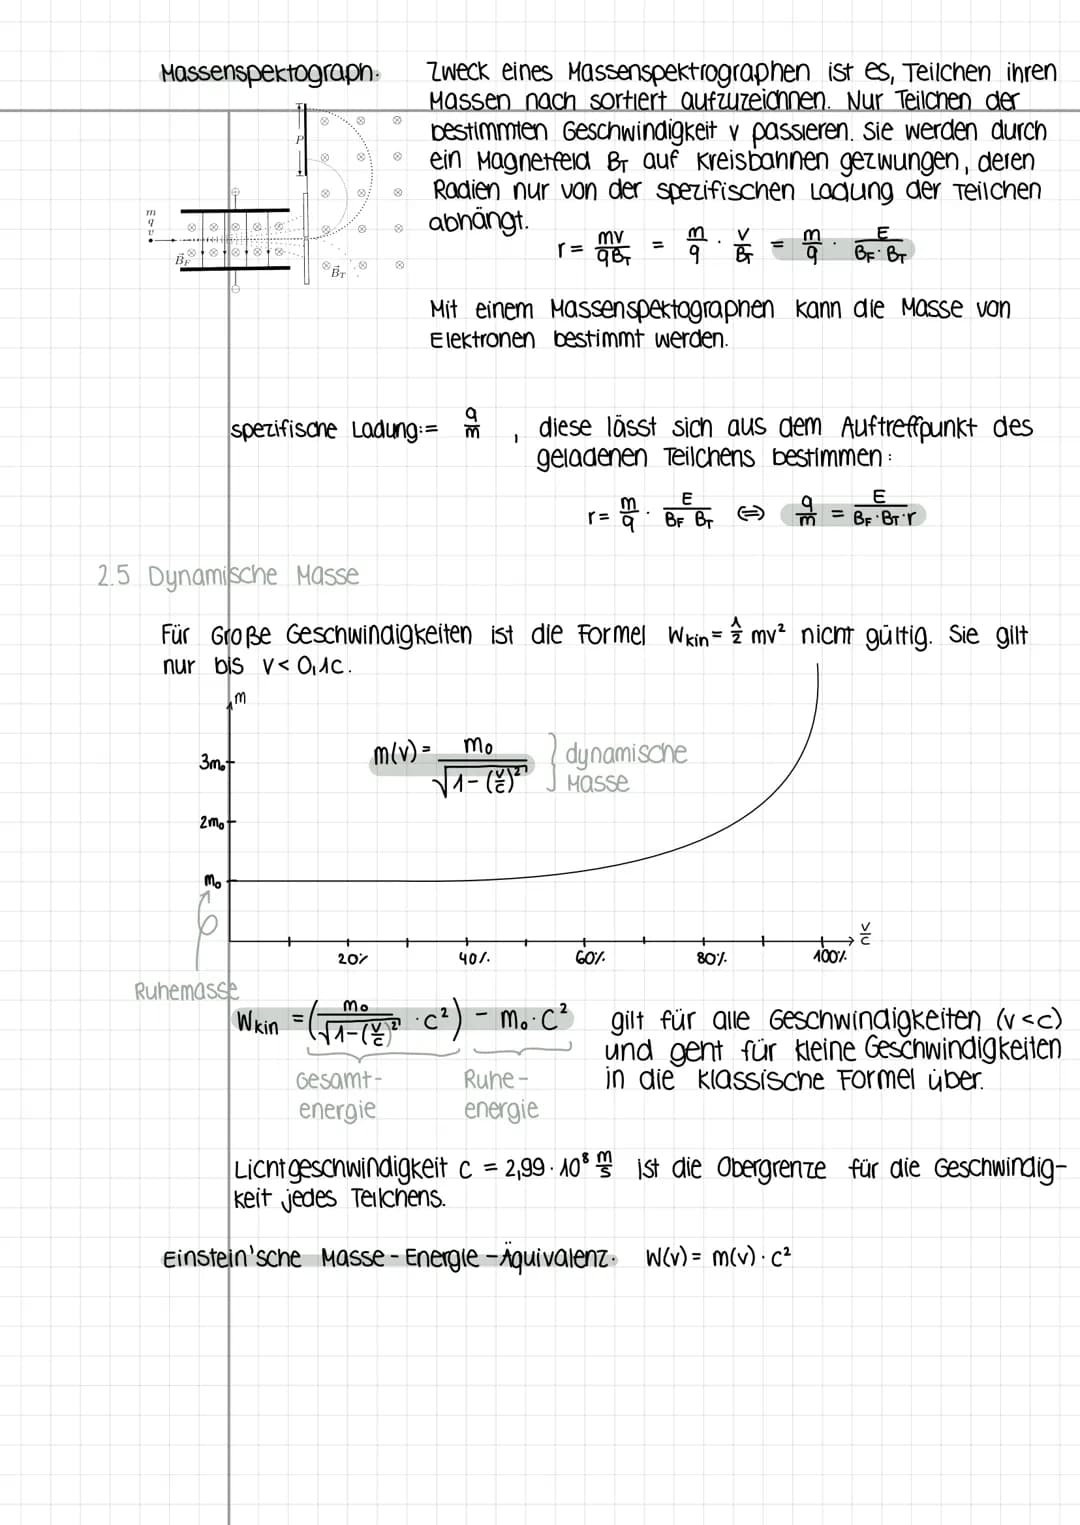 Massenspektograph:
Zweck eines Massenspektrographen ist es, Teilchen ihren
Massen nach sortiert aufzuzeichnen. Nur Teilchen der
bestimmten Geschwindigkeit v passieren. Sie werden durch
ein Magnetfeld B_T auf Kreisbahnen gezwungen, deren
Radien nur von der spezifischen Ladung der Teilchen
abhängt.
P
m
q
v
B_F
B_T
r = mv/qB_T = m/q · v/B_T = m/q · E/B_F · B_T
Mit einem Massenspektographen kann die Masse von
Elektronen bestimmt werden.
spezifische Ladung:= q/m , diese lässt sich aus dem Auftreffpunkt des
geladenen Teilchens bestimmen:
r = m/q · E/B_F B_T ⇔ q/m = E/B_F · B_T · r
2.5 Dynamische Masse
Für Große Geschwindigkeiten ist die Formel Wkin = 1/2 mv² nicht gültig. Sie gilt
nur bis v < 0,1c.
m
3m₀
2m₀
m₀
m(v) = m₀/√1-(v/c)² } dynamische
Masse
20% 40% 60% 80% 100% v/c
Ruhemasse
Wkin = (m₀/√1-(v/c)² · c²) - m₀ · c²
Gesamt-
energie
Ruhe-
energie
gilt für alle Geschwindigkeiten (v<c)
und geht für kleine Geschwindigkeiten
in die klassische Formel über.
Lichtgeschwindigkeit c = 2,99 · 10⁸ m/s ist die Obergrenze für die Geschwindig-
keit jedes Teilchens.
Einstein'sche Masse-Energie-Äquivalenz: W(v) = m(v) · c²